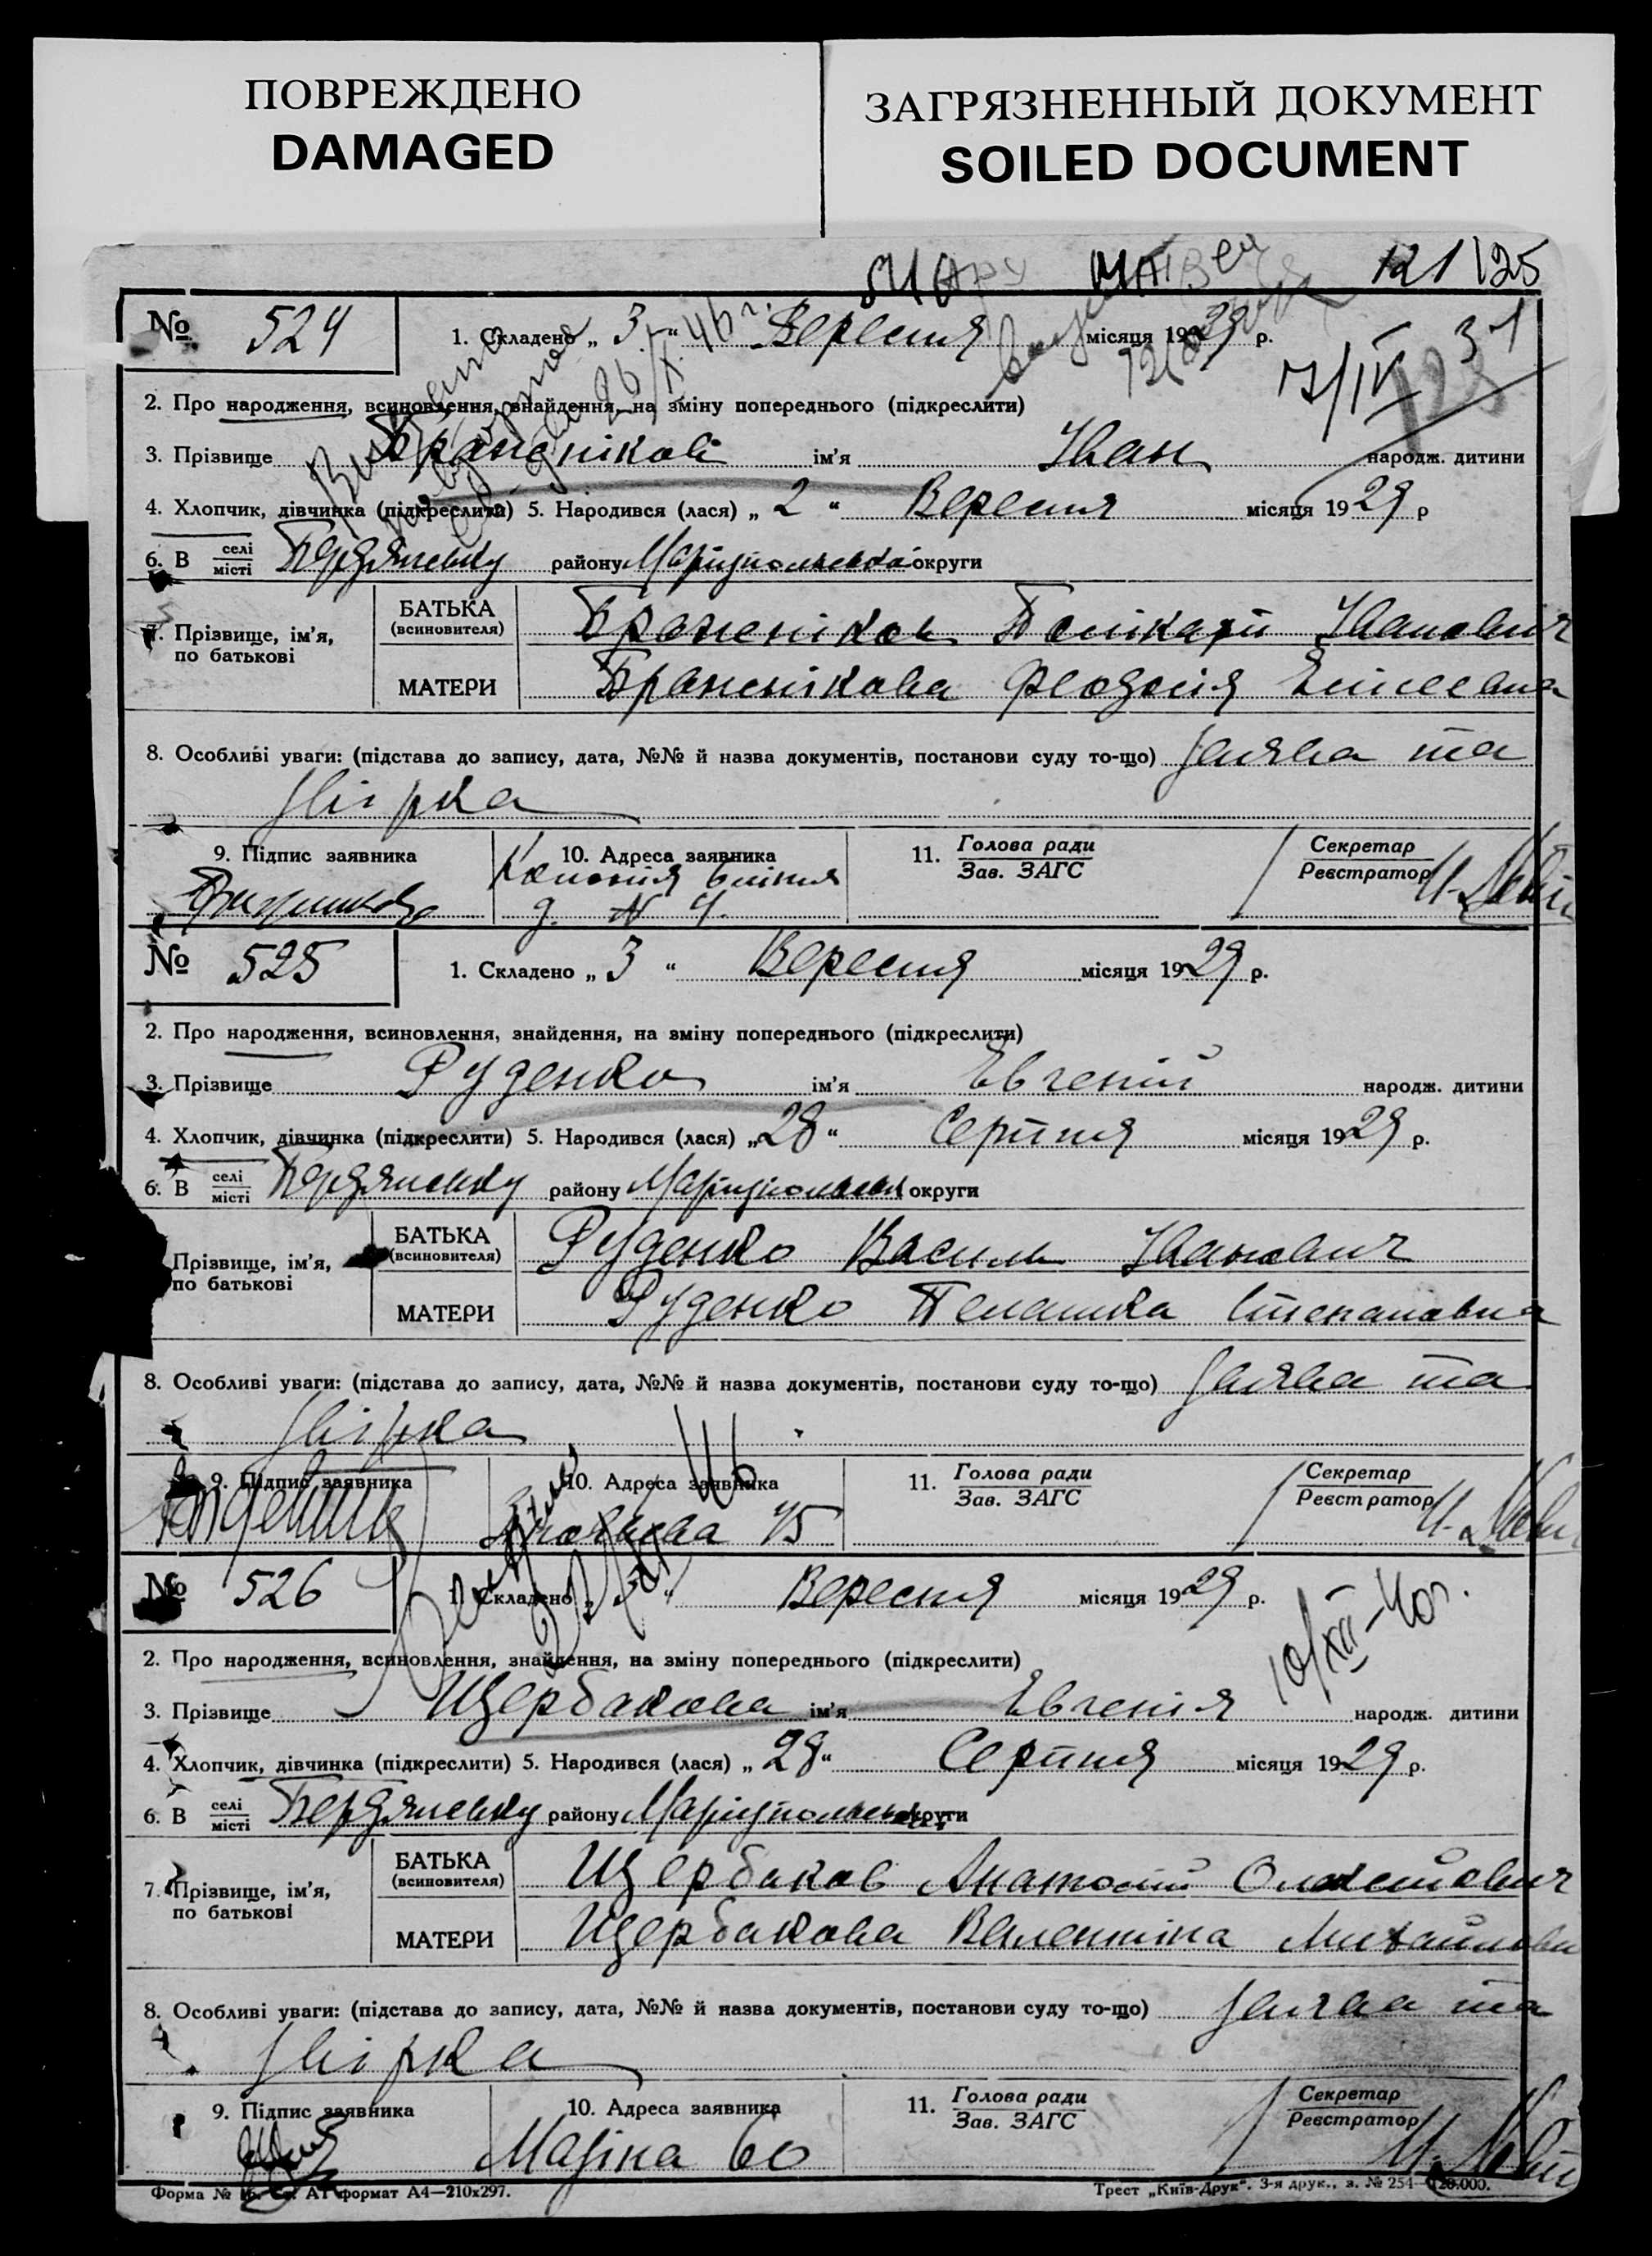 ПОВРЕЖДЕНО
DAMAGED
ЗАГРЯЗНЕННЫЙ ДОКУМЕНТ
SOILED DOCUMENT
121 125
№ 524 1. Складено „ 3 “ Вересня місяця 1929 р.
17/IV 31
2. Про народження, всиновлення, знайдення, на зміну попереднього (підкреслити)
3. Прізвище ім’я Іван народж. дитини
4. Хлопчик, дівчинка (підкреслити) 5. Народився (лася) „ 2 “ Вересня місяця 1929 р
6. В селі місті Бердянську району Маріупольської округи
7. Прізвище, ім’я, по батькові
БАТЬКА (всиновителя) Полікарп Іванович
МАТЕРИ Феодосія Єлісеевна
8. Особливі уваги: (підстава до запису, дата, №№ й назва документів, постанови суду то-що) Заява та
Звірка
9. Підпис заявника 10. Адреса заявника 11. Голова ради Зав. ЗАГС Секретар Реєстратор
д. № 4.
№ 525 1. Складено „ 3 “ Вересня місяця 1929 р.
2. Про народження, всиновлення, знайдення, на зміну попереднього (підкреслити)
3. Прізвище Руденко ім’я Евгеній народж. дитини
4. Хлопчик, дівчинка (підкреслити) 5. Народився (лася) „ 28 “ Серпня місяця 1929 р.
6. В селі місті Бердянську району Маріупольськ округи
Прізвище, ім’я, по батькові
БАТЬКА (всиновителя) Руденко Василь Іванович
МАТЕРИ Руденко Пелашка Степановна
8. Особливі уваги: (підстава до запису, дата, №№ й назва документів, постанови суду то-що) Заява та
Звірка
9. Підпис заявника 10. Адреса заявника 11. Голова ради Зав. ЗАГС Секретар Реєстратор
45
№ 526 1. Складено „ 3 “ Вересня місяця 1929 р.
10/XII-40г.
2. Про народження, всиновлення, знайдення, на зміну попереднього (підкреслити)
3. Прізвище Щербакова ім’я Евгенія народж. дитини
4. Хлопчик, дівчинка (підкреслити) 5. Народився (лася) „ 28 “ Серпня місяця 1929 р.
6. В селі місті Бердянську району Маріупольськ округи
7. Прізвище, ім’я, по батькові
БАТЬКА (всиновителя) Щербаков Анатолій Олексійович
МАТЕРИ Щербакова Валентіна Михайловн
8. Особливі уваги: (підстава до запису, дата, №№ й назва документів, постанови суду то-що) Заява та
Звірка
9. Підпис заявника 10. Адреса заявника 11. Голова ради Зав. ЗАГС Секретар Реєстратор
Мазіна 60
Форма № А1 формат А4—210х297. Трест „Київ-Друк“. 3-я друк., з. № 254